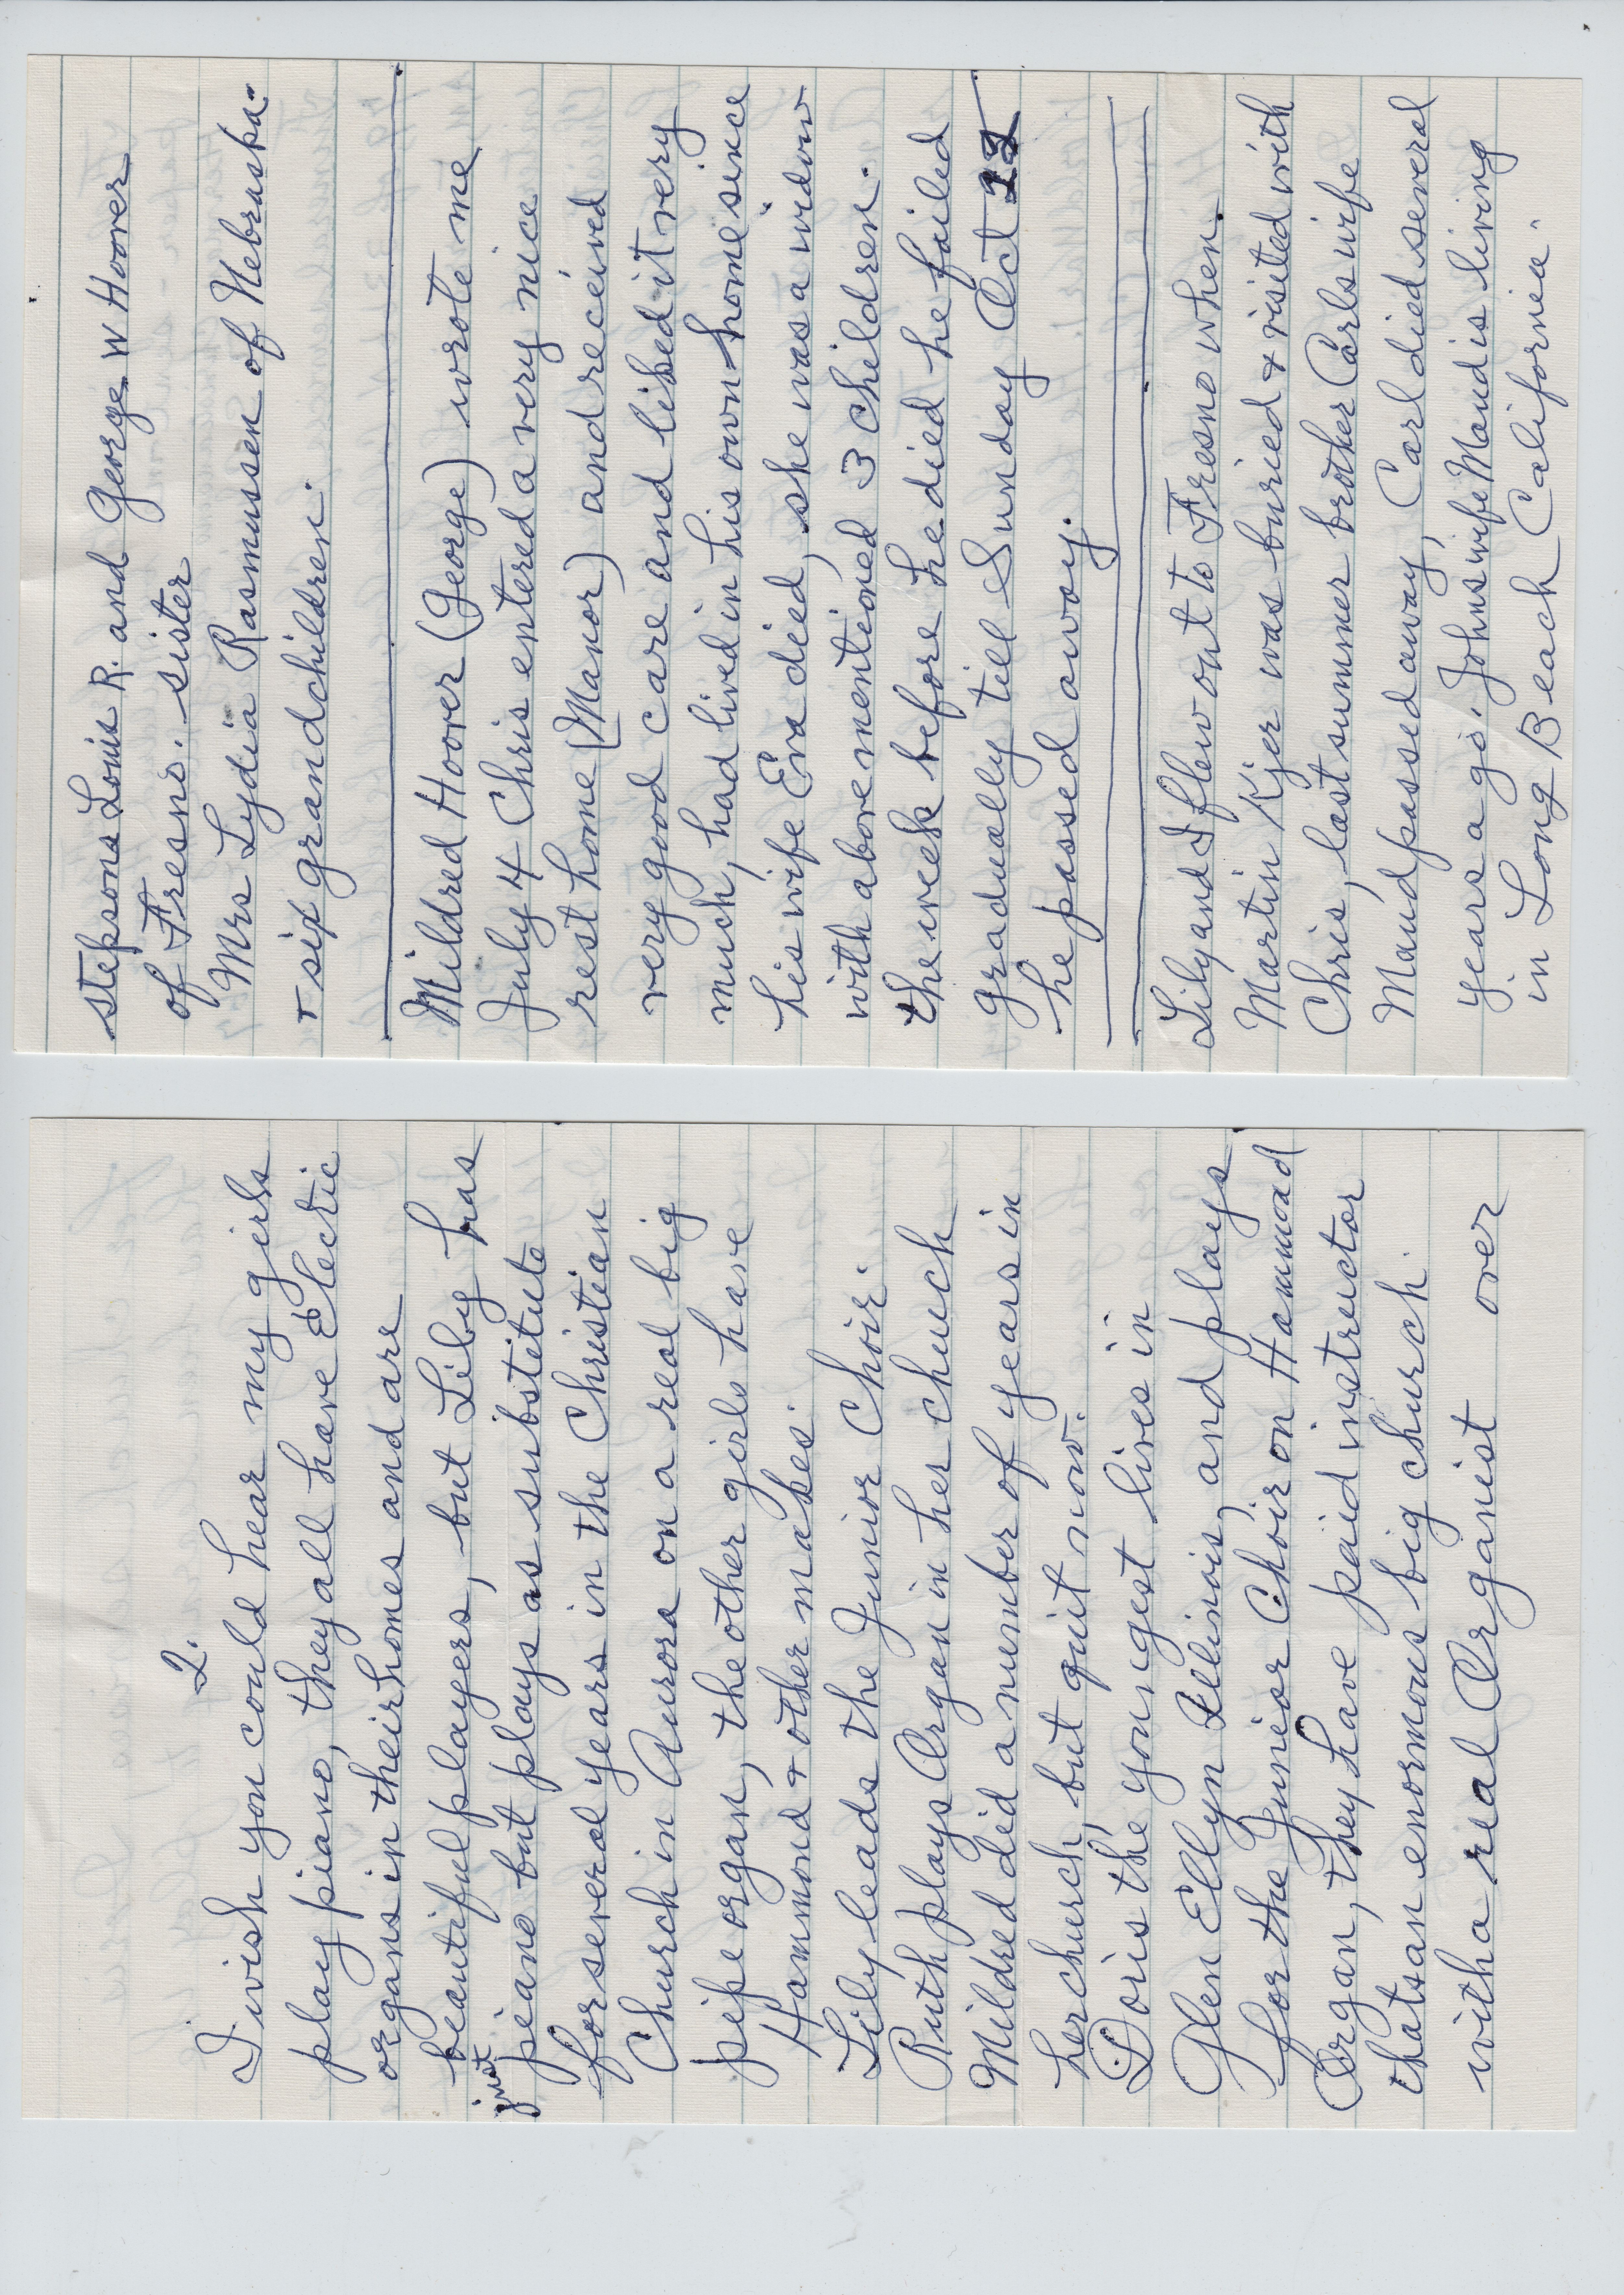 2.
I wish you could hear my girls
play piano, they all have Electric
organs in their homes and are
beautiful players, but Lily has
just
piano but plays as substitute
for several years in the Christian
Church in Aurora on a real big
pipe organ, the other girls have
Hammond & other makes.
Lily leads the Junior Choir.
Ruth plays Organ in her church
Mildred did a number of years in
her church, but quit now.
Doris the youngest lives in
Glen Ellyn Illinois, and plays
for the Junior Choir on Hammond
Organ, they have paid instructor
thats an enormous big church.
with a real Organist over
stepsons Louis R. and George W Hoover
of Fresno. sister
Mrs Lydia Rasmussen of Nebraska.
+ six grandchildren.
Mildred Hoover (George) wrote me
July 4 Chris entered a very nice
rest home (Manor) and received
very good care and liked it very
much, had lived in his own home since
his wife Eva died, she was a widow
with above mentioned 3 children.
the week before he died he failed
gradually till Sunday Oct
he passed away.
Lily and I flew out to Fresno when
Martin Kjer was buried & visited with
Chris, last summer brother Carls wife
Maud passed away, Carl died several
years ago. Johns wife Maud is living
in Long Beach California.